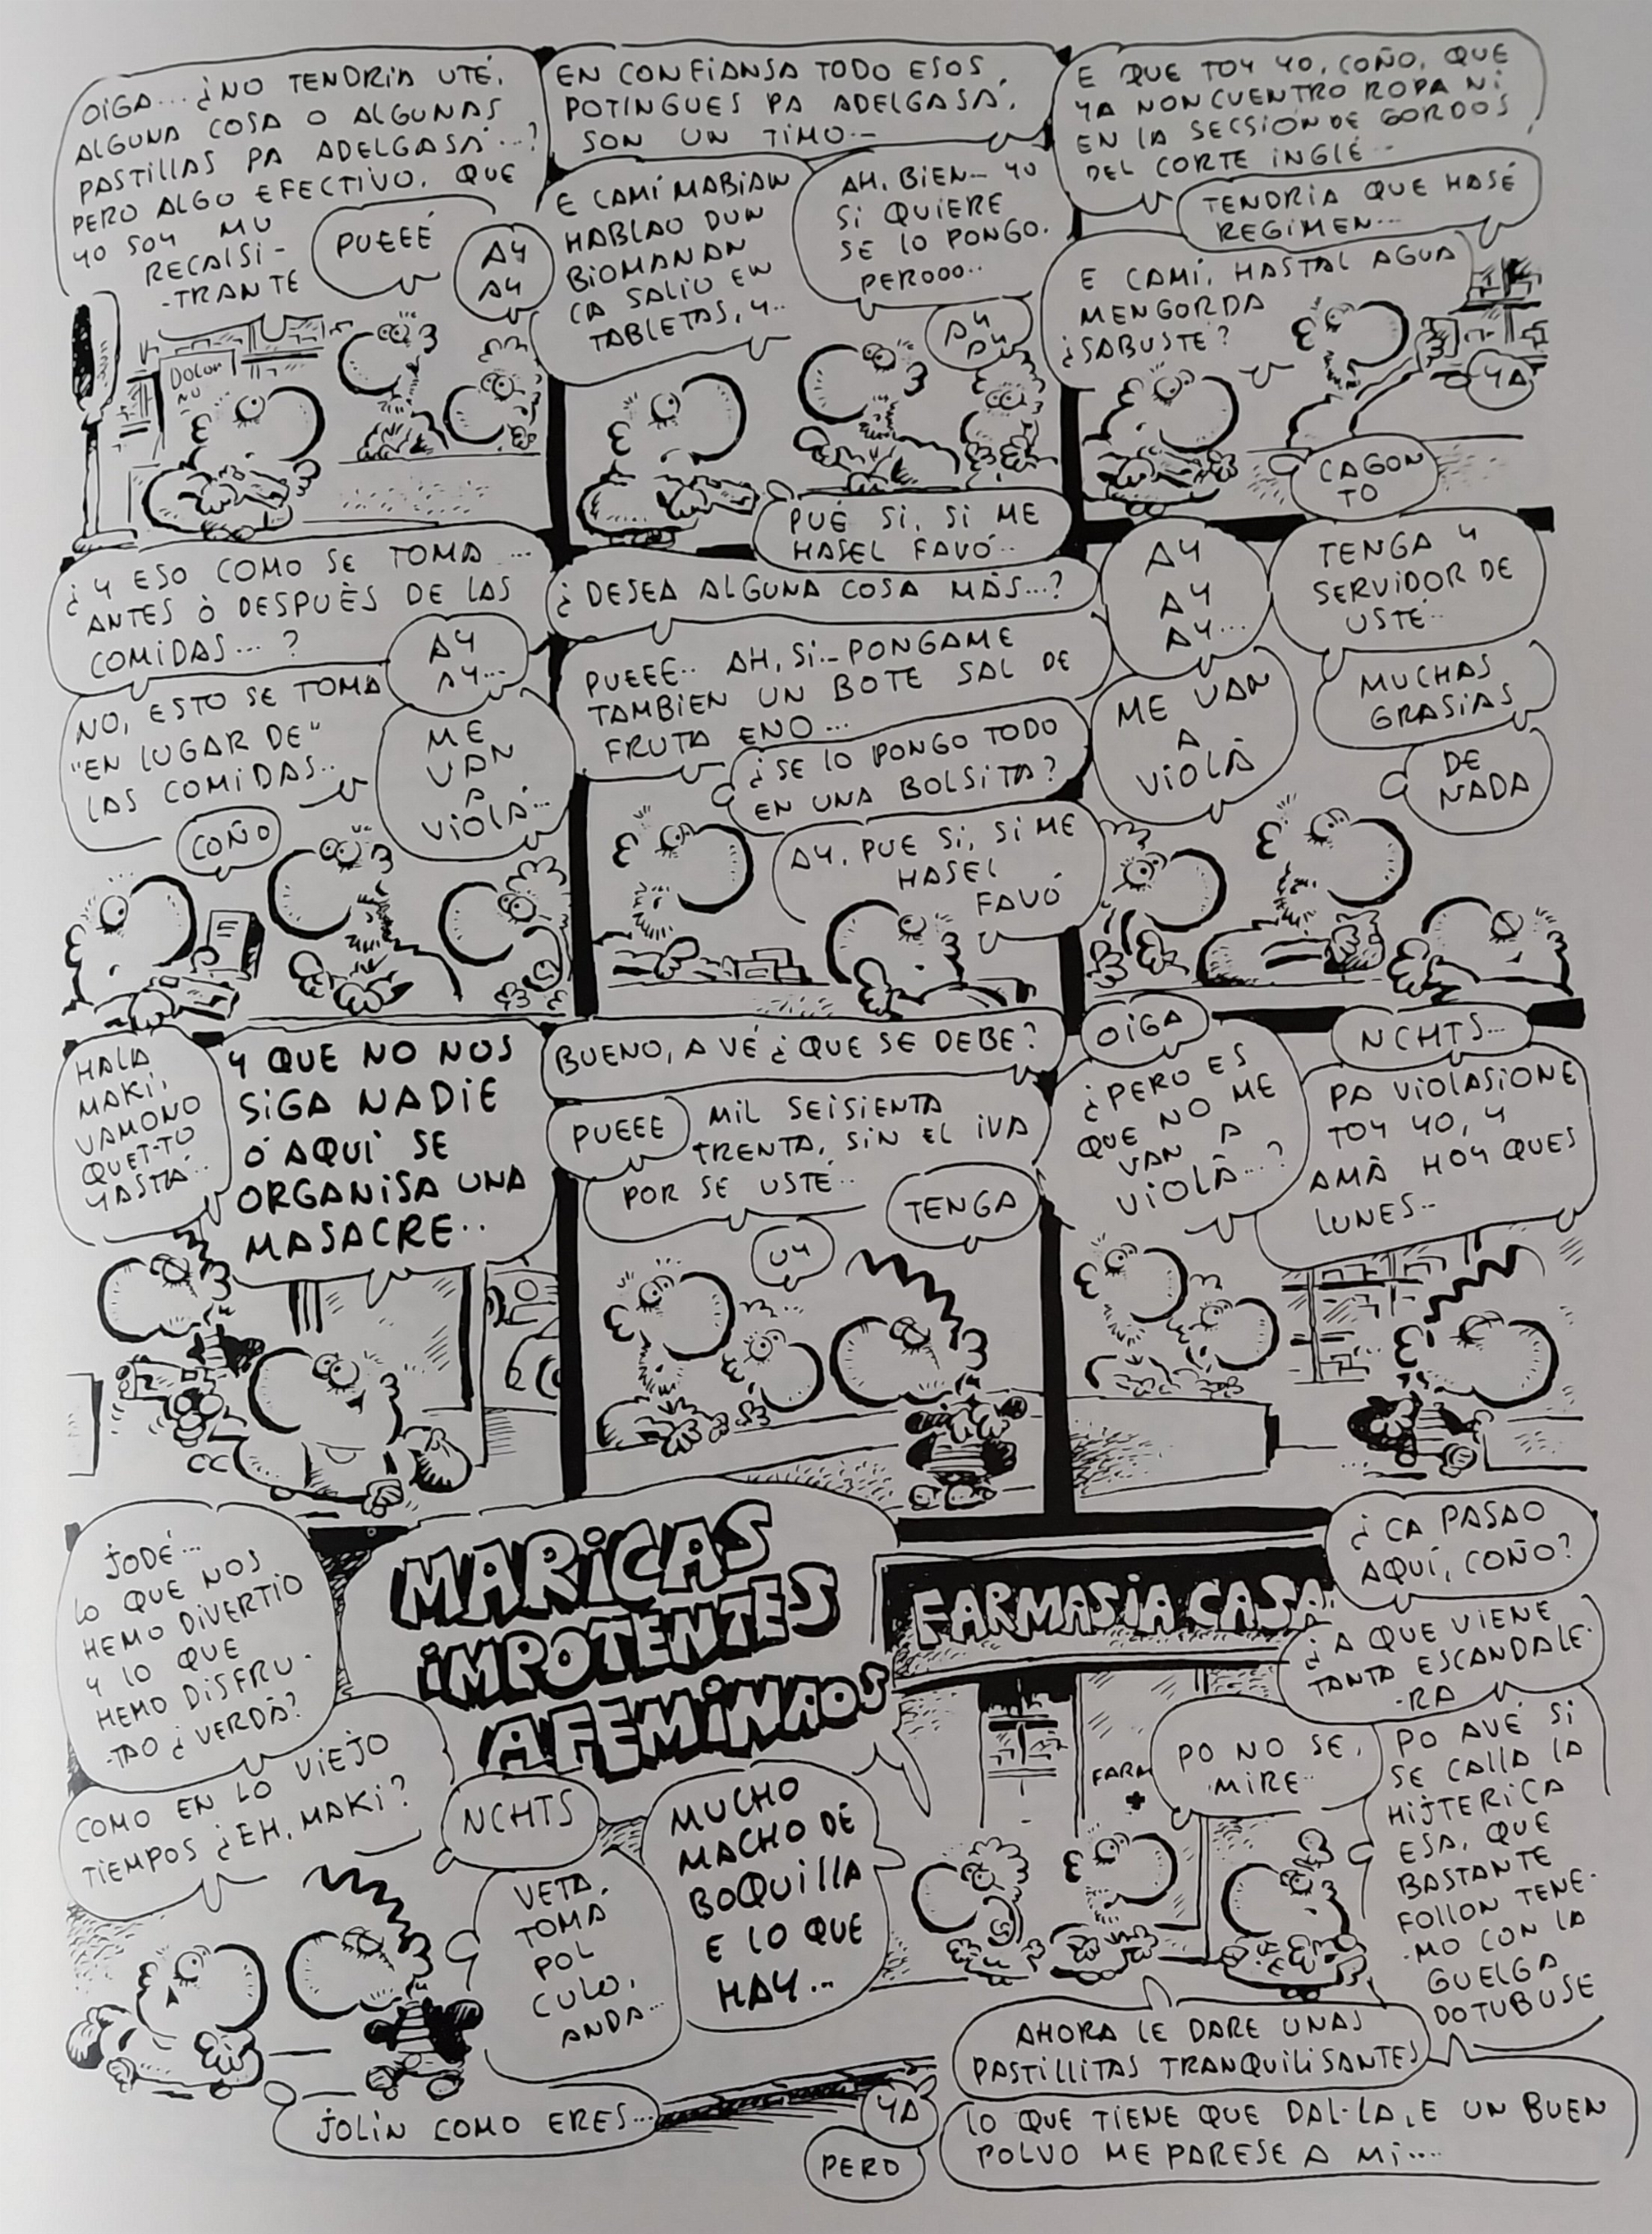 OIGA... ¿NO TENDRIA UTÉ.
ALGUNA COSA O ALGUNAS
PASTILLAS PA ADELGASÁ...?
PERO ALGO EFECTIVO. QUE
YO SOY MU
RECALSI-
-TRANTE
PUEEÉ
AY
AY
DOLOR
NO
EN CONFIANSA TODO ESOS
POTINGUES PA ADELGASÁ,
SON UN TIMO...
E CAMÍ MABIAN
HABLAO DUN
BIOMANAN
CA SALIO EN
TABLETAS, Y..
AH, BIEN... YO
SI QUIERE
SE LO PONGO.
PEROOO..
AY
AY
PUÉ SI, SI ME
HASEL FAVÓ..
E QUE TOY YO, COÑO, QUE
YA NONCUENTRO ROPA NI
EN LA SECSION DE GORDOS
DEL CORTE INGLÉ..
TENDRIA QUE HASÉ
REGIMEN...
E CAMÍ, HASTAL AGUA
MENGORDA
¿SABUSTÉ?
YA
CAGON
TO
¿Y ESO COMO SE TOMA...
ANTES Ò DESPUÈS DE LAS
COMIDAS...?
AY
AY...
NO, ESTO SE TOMA
"EN LUGAR DE"
LAS COMIDAS..
ME
VAN
A
VIOLÁ...
COÑO
¿DESEA ALGUNA COSA MÁS...?
PUEEE.. AH, SI... PONGAME
TAMBIEN UN BOTE SAL DE
FRUTA ENO...
¿SE LO PONGO TODO
EN UNA BOLSITA?
AY, PUE SI, SI ME
HASEL
FAVÓ
AY
AY
AY...
ME VAN
A
VIOLÁ
TENGA Y
SERVIDOR DE
USTÉ..
MUCHAS
GRASIAS
DE
NADA
HALA
MAKI,
VAMONO
QUET-TO
YASTÁ..
Y QUE NO NOS
SIGA NADIE
Ó AQUÍ SE
ORGANISA UNA
MASACRE..
BUENO, A VÉ ¿QUE SE DEBE?
PUEEE
MIL SEISIENTA
TRENTA, SIN EL IVA
POR SE USTÉ..
UY
TENGA
OIGA
¿PERO ES
QUE NO ME
VAN A
VIOLÁ...?
NCHTS...
PA VIOLASIONE
TOY YO, Y
AMÁ HOY QUES
LUNES..
JODÉ...
LO QUE NOS
HEMO DIVERTIO
Y LO QUE
HEMO DISFRU-
-TAO ¿VERDÁ?
COMO EN LO VIEJO
TIEMPOS ¿EH, MAKI?
NCHTS
VETA
TOMÁ
POL
CULO,
ANDA...
JOLÍN COMO ERES...
MARICAS
IMPOTENTES
AFEMINAOS
MUCHO
MACHO DE
BOQUILLA
E LO QUE
HAY...
FARMASIA CASA
FARM
¿CA PASAO
AQUÍ, COÑO?
¿A QUE VIENE
TANTA ESCANDALE-
-RA
PO NO SE,
MIRE..
PO AVÉ SI
SE CALLA LA
HIJTERICA
ESA, QUE
BASTANTE
FOLLON TENE-
-MO CON LA
GUELGA
DOTUBUSE
AHORA LE DARE UNAS
PASTILLITAS TRANQUILISANTES
YA
PERO
LO QUE TIENE QUE DAL-LA, E UN BUEN
POLVO ME PARESE A MI....